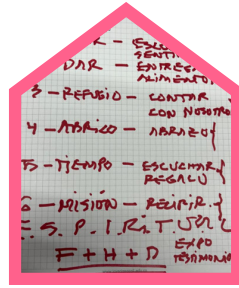 R — ESCU
SENTI
DAR — ENTREGA
ALIMENTO
3 — REFUGIO — CONTAR
CON NOSOTRO
4 — ABRIGO — ABRAZO
5 — TIEMPO — ESCUCHAR
REGALO
6 — MISIÓN — RECIBIR.
E. S. P. I. R. I. T. U. A. L
F + H + D EXPO
TESTIMONIO